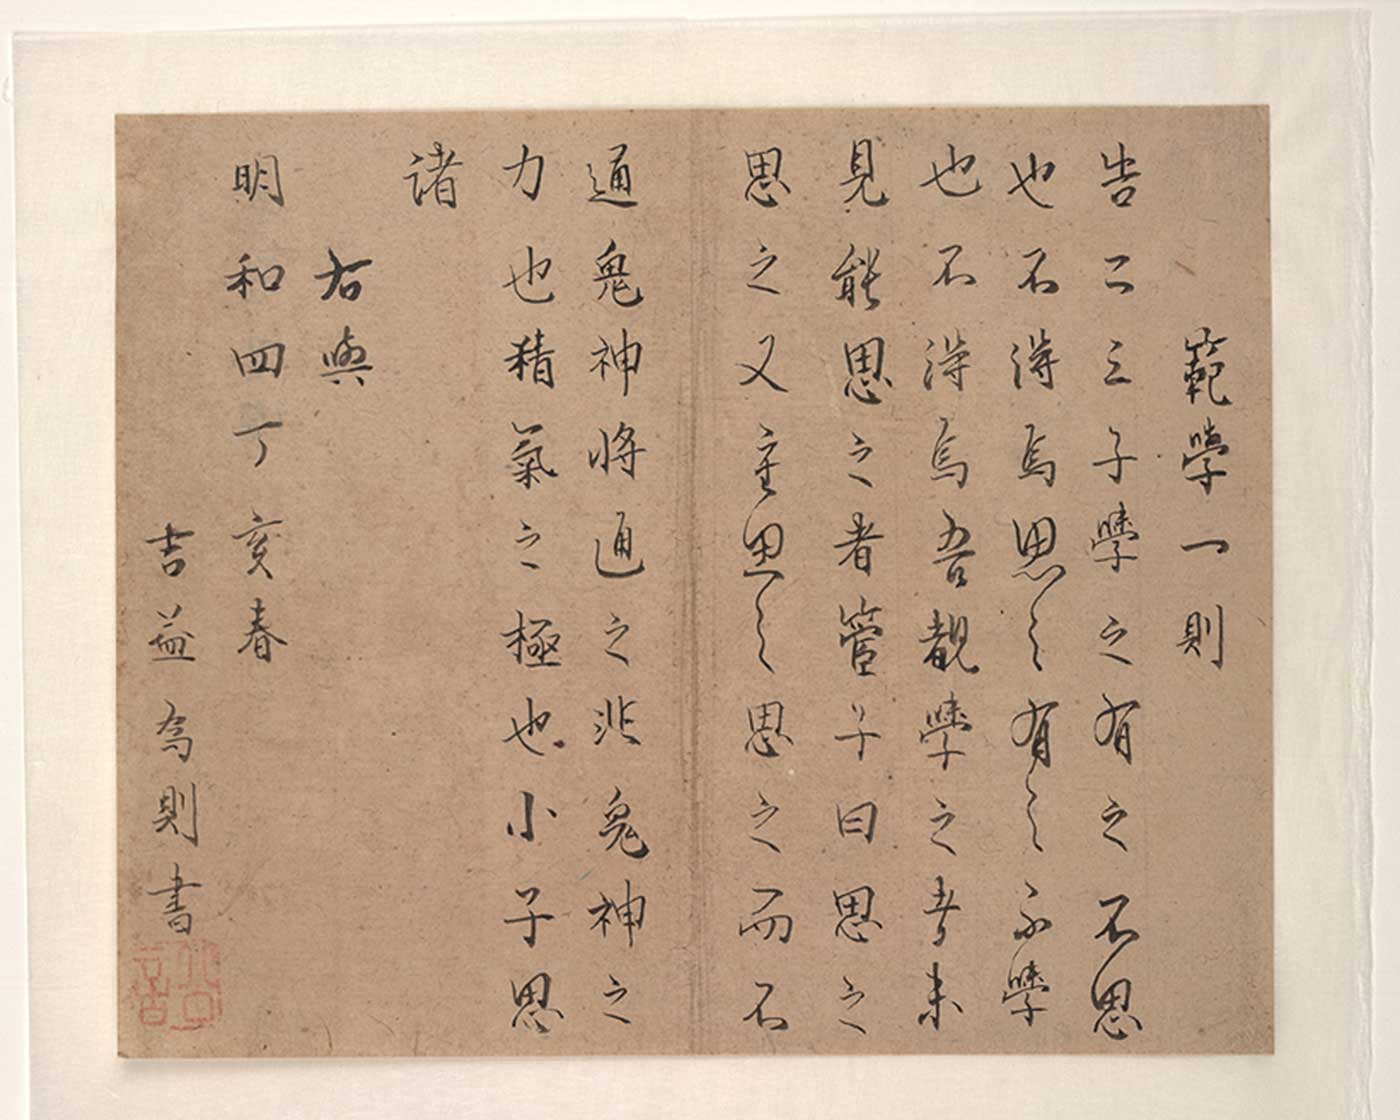 範學一則
告二三子學之有之不思
也不得焉思之有之不學
也不得焉吾觀學之者未
見能思之者管子曰思之
思之又重思之思之而不
通鬼神將通之非鬼神之
力也精氣之極也小子思
諸
右與
明和四丁亥春
吉益為則書